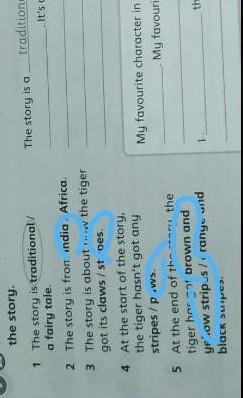 the story.
1 The story is traditional /
a fairy tale.
2 The story is from India / Africa.
3 The story is about how the tiger
got its claws / stripes.
4 At the start of the story,
the tiger hasn't got any
stripes / paws.
5 At the end of the story, the
tiger has got brown and
yellow stripes / orange and
black stripes.
The story is a traditional
. It's
My favourite character in
. My favouri
1
th